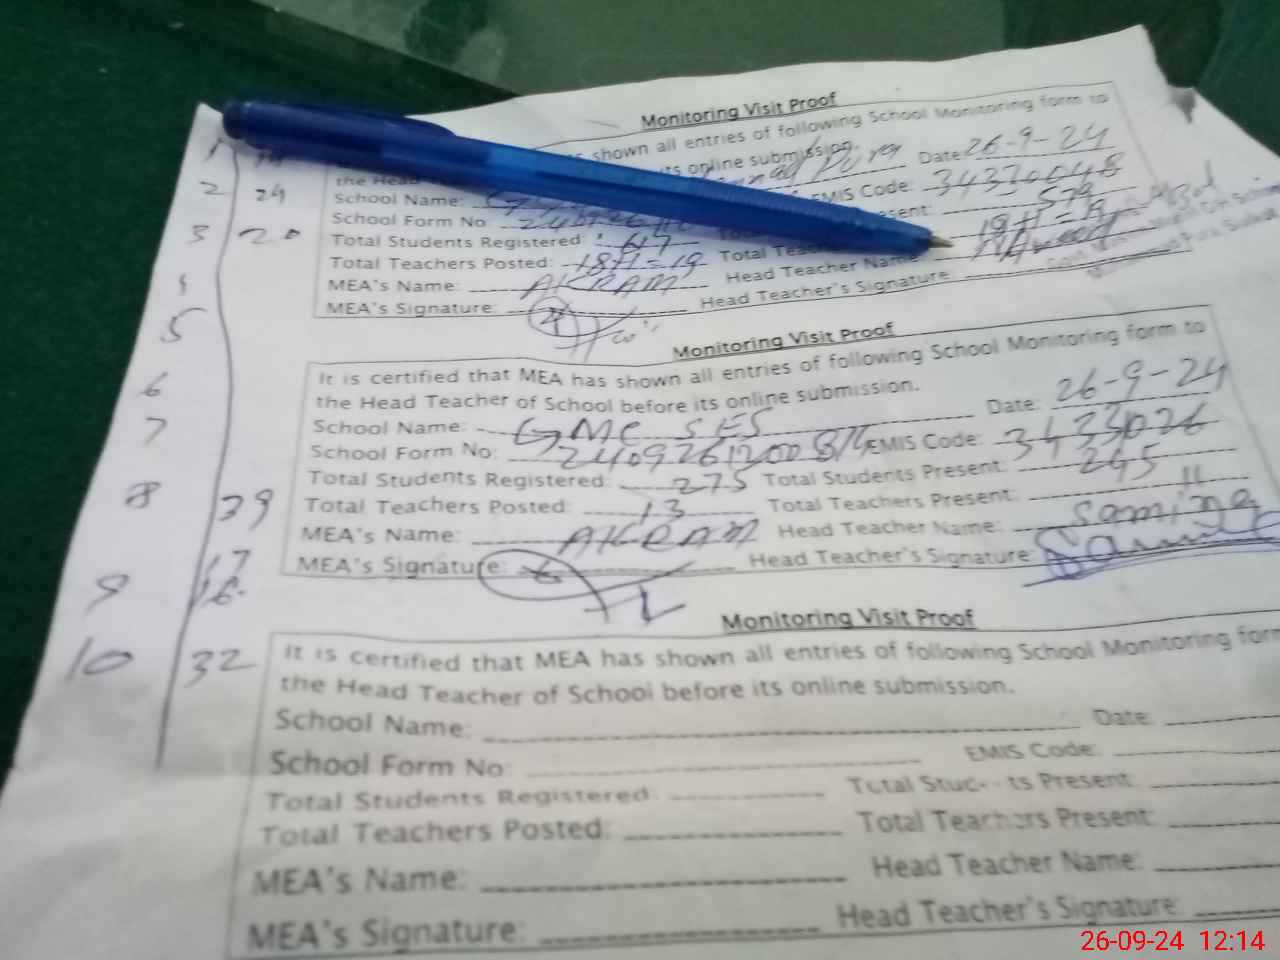 Monitoring Visit Proof
shown all entries of following School Monitoring form to
the Head its online submission.
School Name: Date: 26-9-24
School Form No. EMIS Code: 34330048
Total Students Registered: 617 579
Total Teachers Posted: 18+1=19 Total 18+1=19
MEA's Name: AKRAM Head Teacher Name:
MEA's Signature: Head Teacher's Signature:
Monitoring Visit Proof
It is certified that MEA has shown all entries of following School Monitoring form to
the Head Teacher of School before its online submission.
School Name: GMC SES Date: 26-9-24
School Form No: EMIS Code: 3433026
Total Students Registered: 275 Total Students Present: 245
Total Teachers Posted: 13 Total Teachers Present: 11
MEA's Name: AKRAM Head Teacher Name: Samina
MEA's Signature: Head Teacher's Signature:
Monitoring Visit Proof
It is certified that MEA has shown all entries of following School Monitoring form
the Head Teacher of School before its online submission.
School Name: Date:
School Form No: EMIS Code:
Total Students Registered: Total Students Present:
Total Teachers Posted: Total Teachers Present:
MEA's Name: Head Teacher Name:
MEA's Signature: Head Teacher's Signature:
1
2 24
3 20
5
6
7
8 39
17
9 16
10 32
26-09-24 12:14